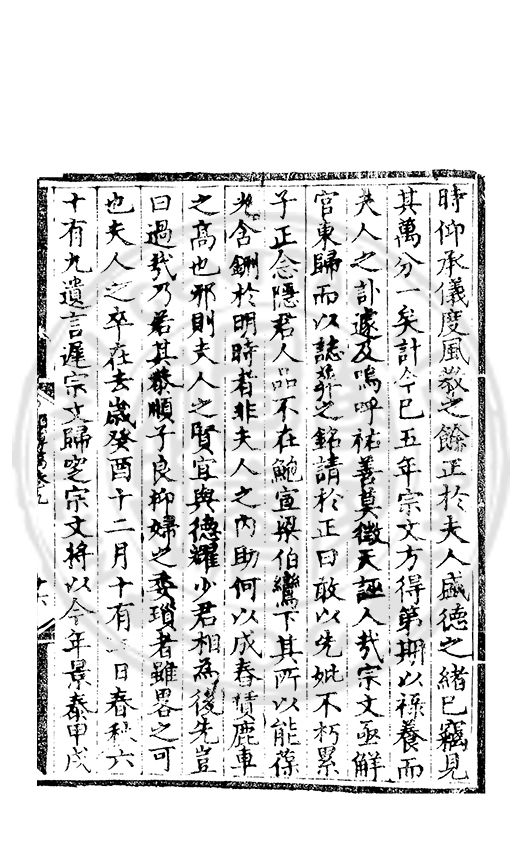 時仰承儀度風教之餘正於夫人盛德之緒已竊見
其萬分一矣計今已五年宗文方得第期以祿養而
夫人之訃遽及嗚呼祐善莫徵天誣人哉宗文亟解
官東歸而以誌葬之銘請於正曰敢以先妣不朽累
子正念隱君人品不在鮑宣梁伯鸞下其所以能葆
光含鉶於明時者非夫人之內助何以成舂賃鹿車
之高也邪則夫人之賢宜與德耀少君相為後先豈
曰過哉乃若其恭順子良抑婦之委瑣者雖畧之可
也夫人之卒在去歲癸酉十二月十有日春秋六
十有九遺言遲宗文歸窆宗文將以今年景泰甲戌